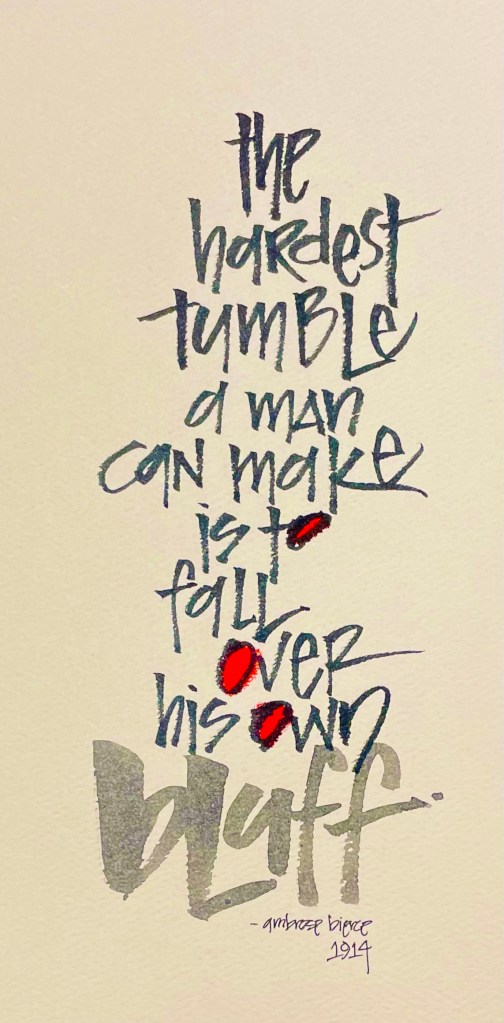 the
hardest
tumble
a man
can make
is to
fall
over
his own
bluff.
- ambrose bierce
1914